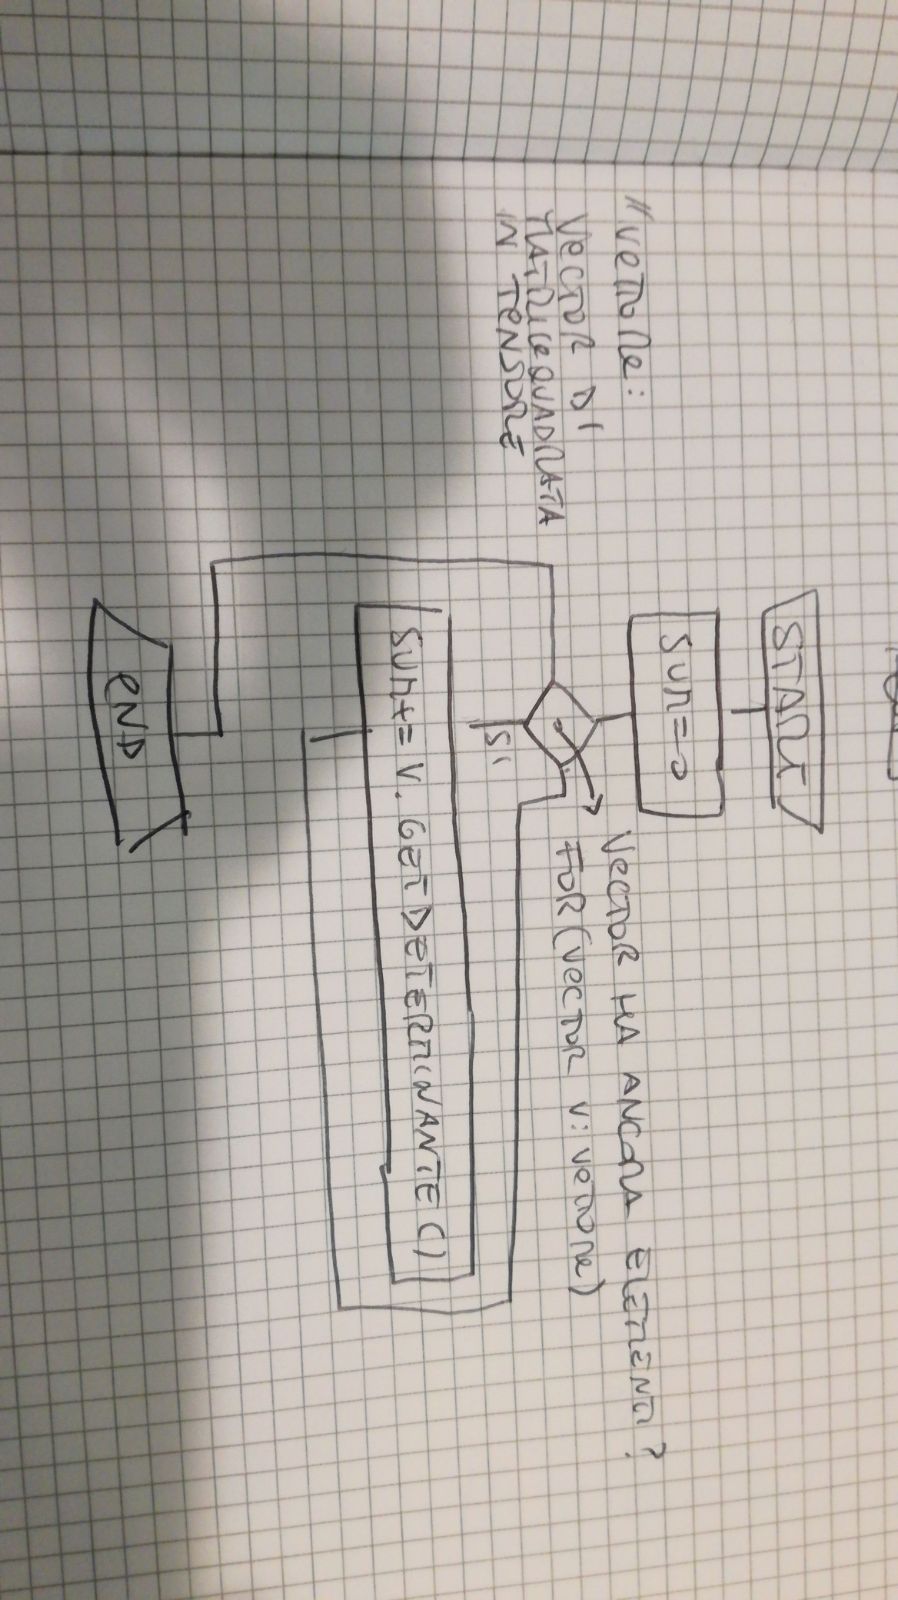 START
SUM=0
// VETTORE:
VECTOR DI
MATRICEQUADRATA
IN TENSORE
VECTOR HA ANCORA ELEMENTI?
FOR(VECTOR V: VETTORE)
SI
SUM+= V. GETDETERMINANTE()
END